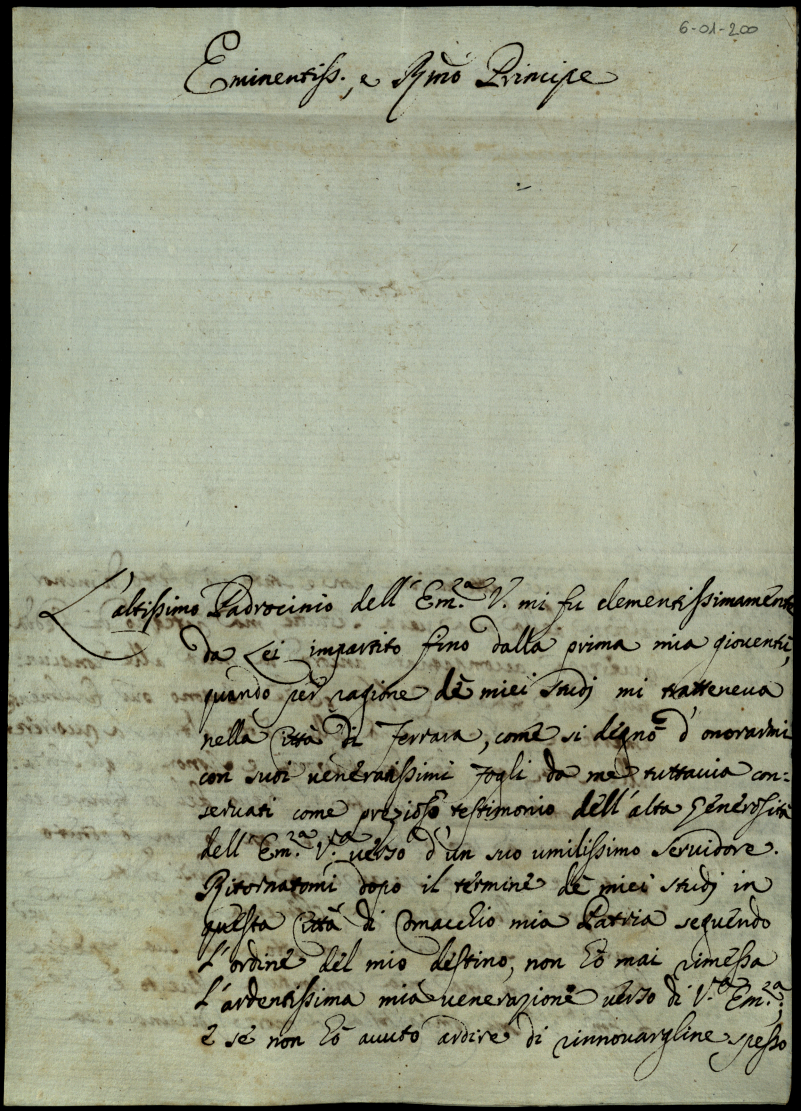 6-01-200
Eminentiss., e Rmo Principe
L'altissimo Padrocinio dell'Em.za V. mi fu clementissimamente
da Lei impartito fino dalla prima mia gioventù,
quando per ragione de miei studj mi tratteneva
nella Città di Ferrara, come si degnò d'onorarmi
con suoi veneratissimi fogli da me tuttavia con=
servati come prezioso testimonio dell'alta generosità
dell'Em.za V.ra verso d'un suo umilissimo servidore.
Ritornatomi dopo il termine de miei studj in
questa Città di Comacchio mia Patria seguendo
l'ordine del mio destino, non hò mai rimessa
l'ardentissima mia venerazione verso di V.ra Em.za;
e se non hò avuto ardire di rinnovargline spesso